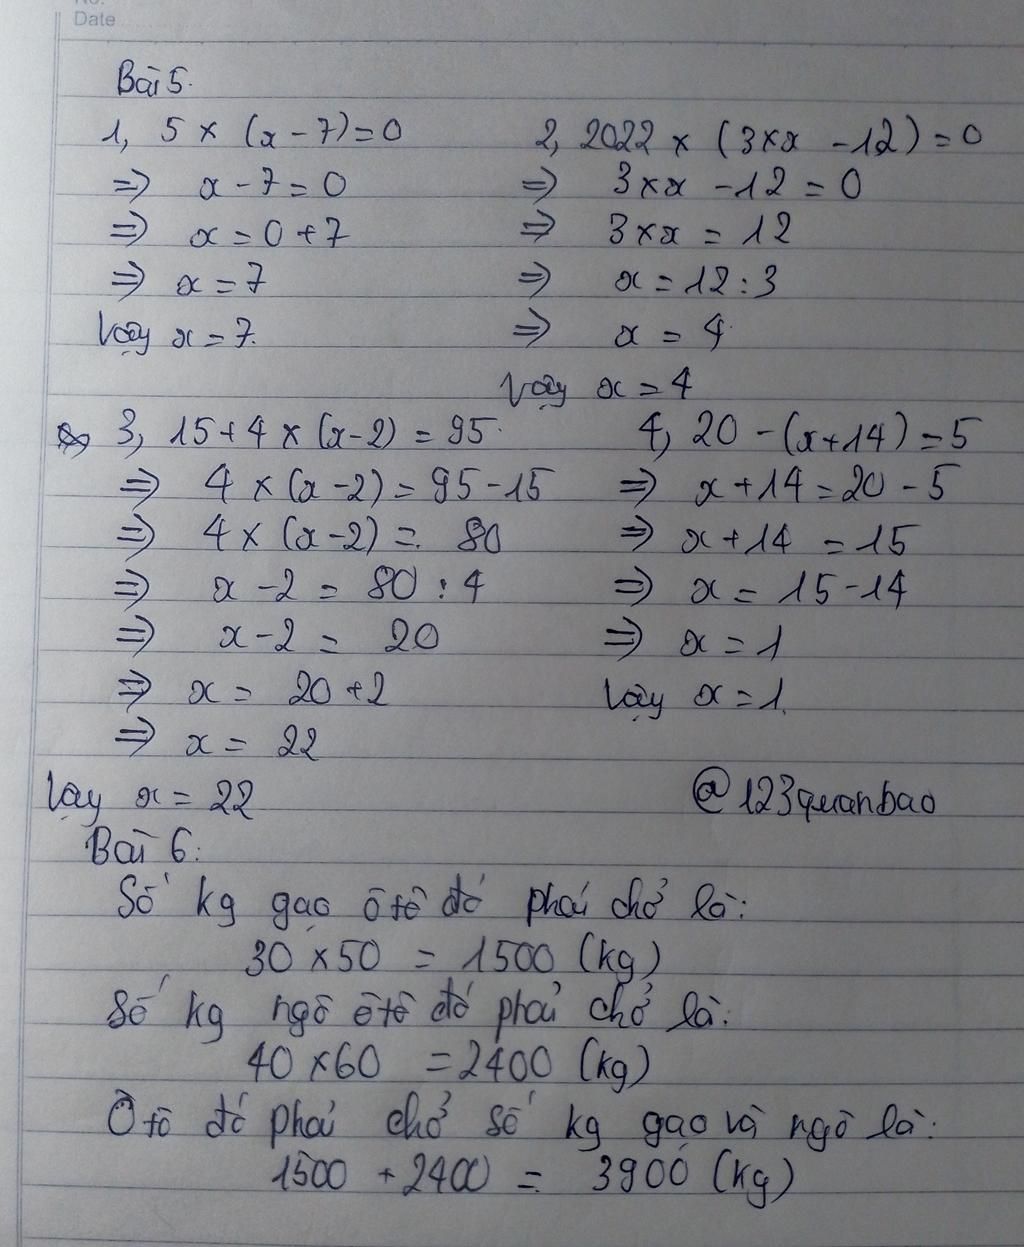 No.
Date
Bài 5.
1, 5 × (x - 7) = 0
⇒ x - 7 = 0
⇒ x = 0 + 7
⇒ x = 7
Vậy x = 7.
2, 2022 × (3 × x - 12) = 0
⇒ 3 × x - 12 = 0
⇒ 3 × x = 12
⇒ x = 12 : 3
⇒ x = 4
Vậy x = 4
3, 15 + 4 × (x - 2) = 95
⇒ 4 × (x - 2) = 95 - 15
⇒ 4 × (x - 2) = 80
⇒ x - 2 = 80 : 4
⇒ x - 2 = 20
⇒ x = 20 + 2
⇒ x = 22
Vậy x = 22
4, 20 - (x + 14) = 5
⇒ x + 14 = 20 - 5
⇒ x + 14 = 15
⇒ x = 15 - 14
⇒ x = 1
Vậy x = 1.
@123quanbao
Bài 6:
Số kg gạo ô tô đó phải chở là:
30 × 50 = 1500 (kg)
Số kg ngô ô tô đó phải chở là:
40 × 60 = 2400 (kg)
Ô tô đó phải chở số kg gạo và ngô là:
1500 + 2400 = 3900 (kg)